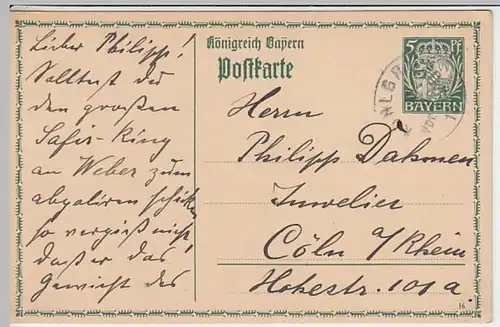 Lieber Philipp!
Solltest du
den großen
Safir-Ring
an Weber zum
schicken
so vergiß nicht
daß er das
Gewicht des
Königreich Bayern
Postkarte
5 Pf
BAYERN
Herrn
Philipp Dahmen
Juwelier
Cöln a/Rhein
Hohestr. 101 a.
16